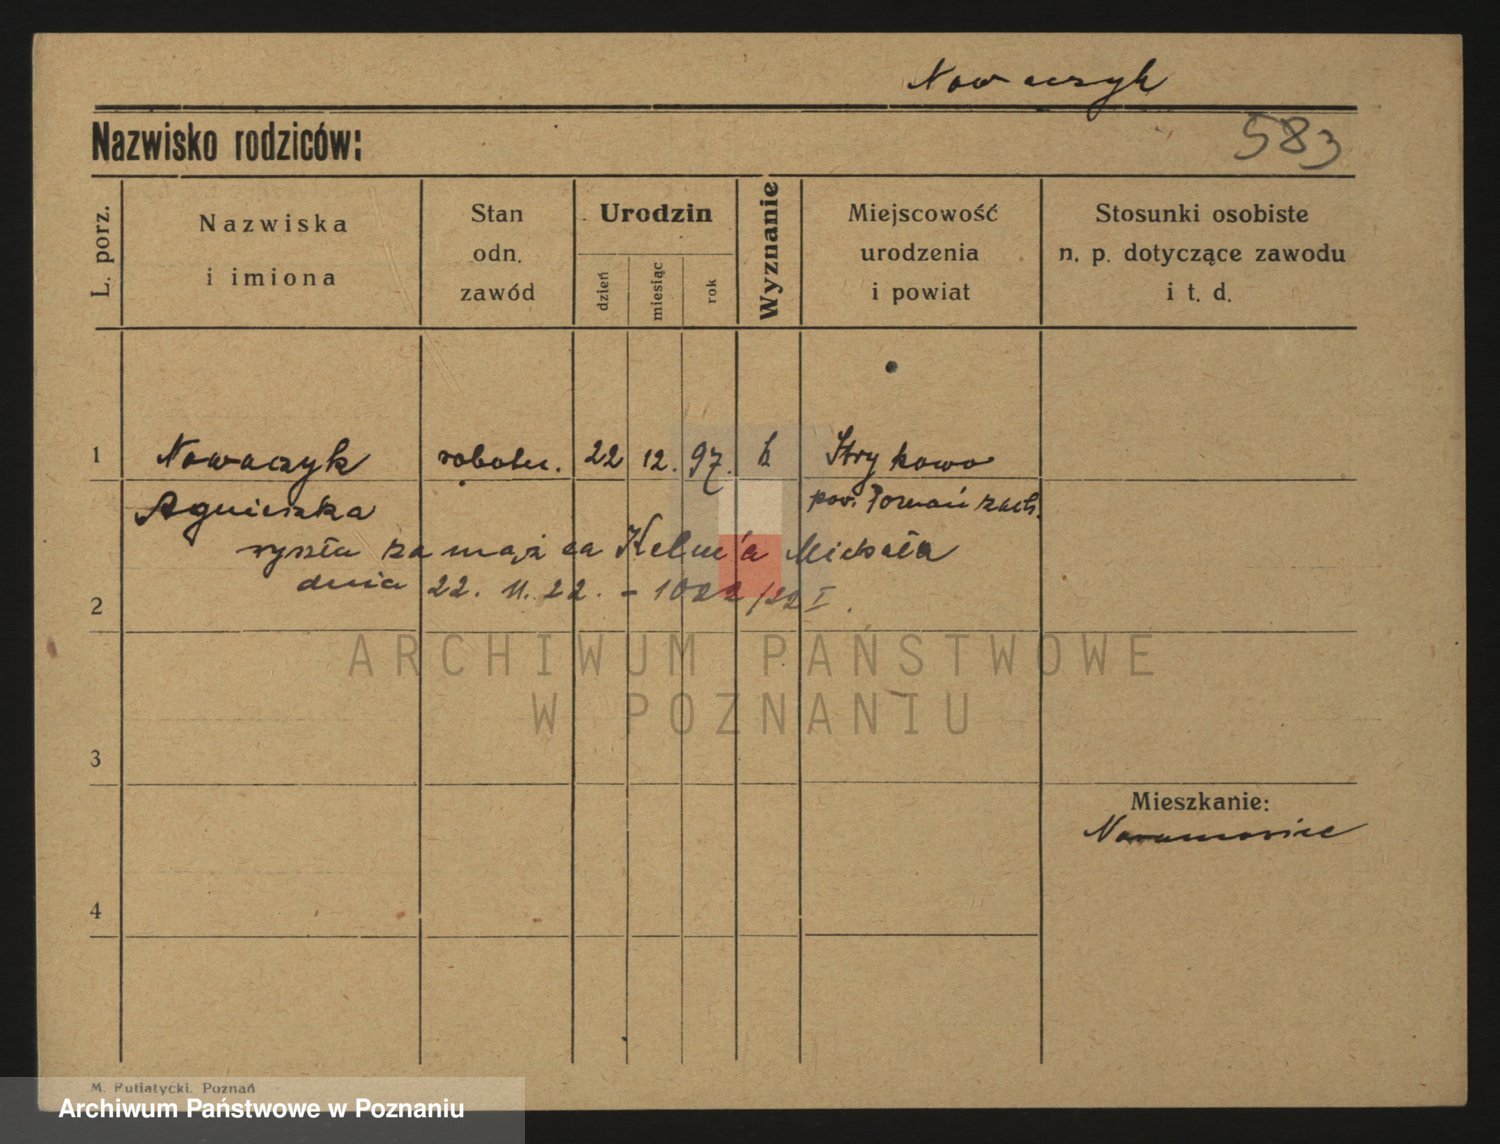 Nowaczyk
Nazwisko rodziców:
583
L. porz.
Nazwiska
i imiona
Stan
odn.
zawód
Urodzin
dzień
miesiąc
rok
Wyznanie
Miejscowość
urodzenia
i powiat
Stosunki osobiste
n. p. dotyczące zawodu
i t. d.
1 Nowaczyk robotn. 22 12. 97. k Strykowo
Agnieszka pow. Poznań zach.
wyszła za mąż za Kelm'a Michała
dnia 22. 11. 22. - 1022/22 I.
2
ARCHIWUM PAŃSTWOWE
W POZNANIU
3
Mieszkanie:
Naramowice
4
M. Putiatycki. Poznań
Archiwum Państwowe w Poznaniu